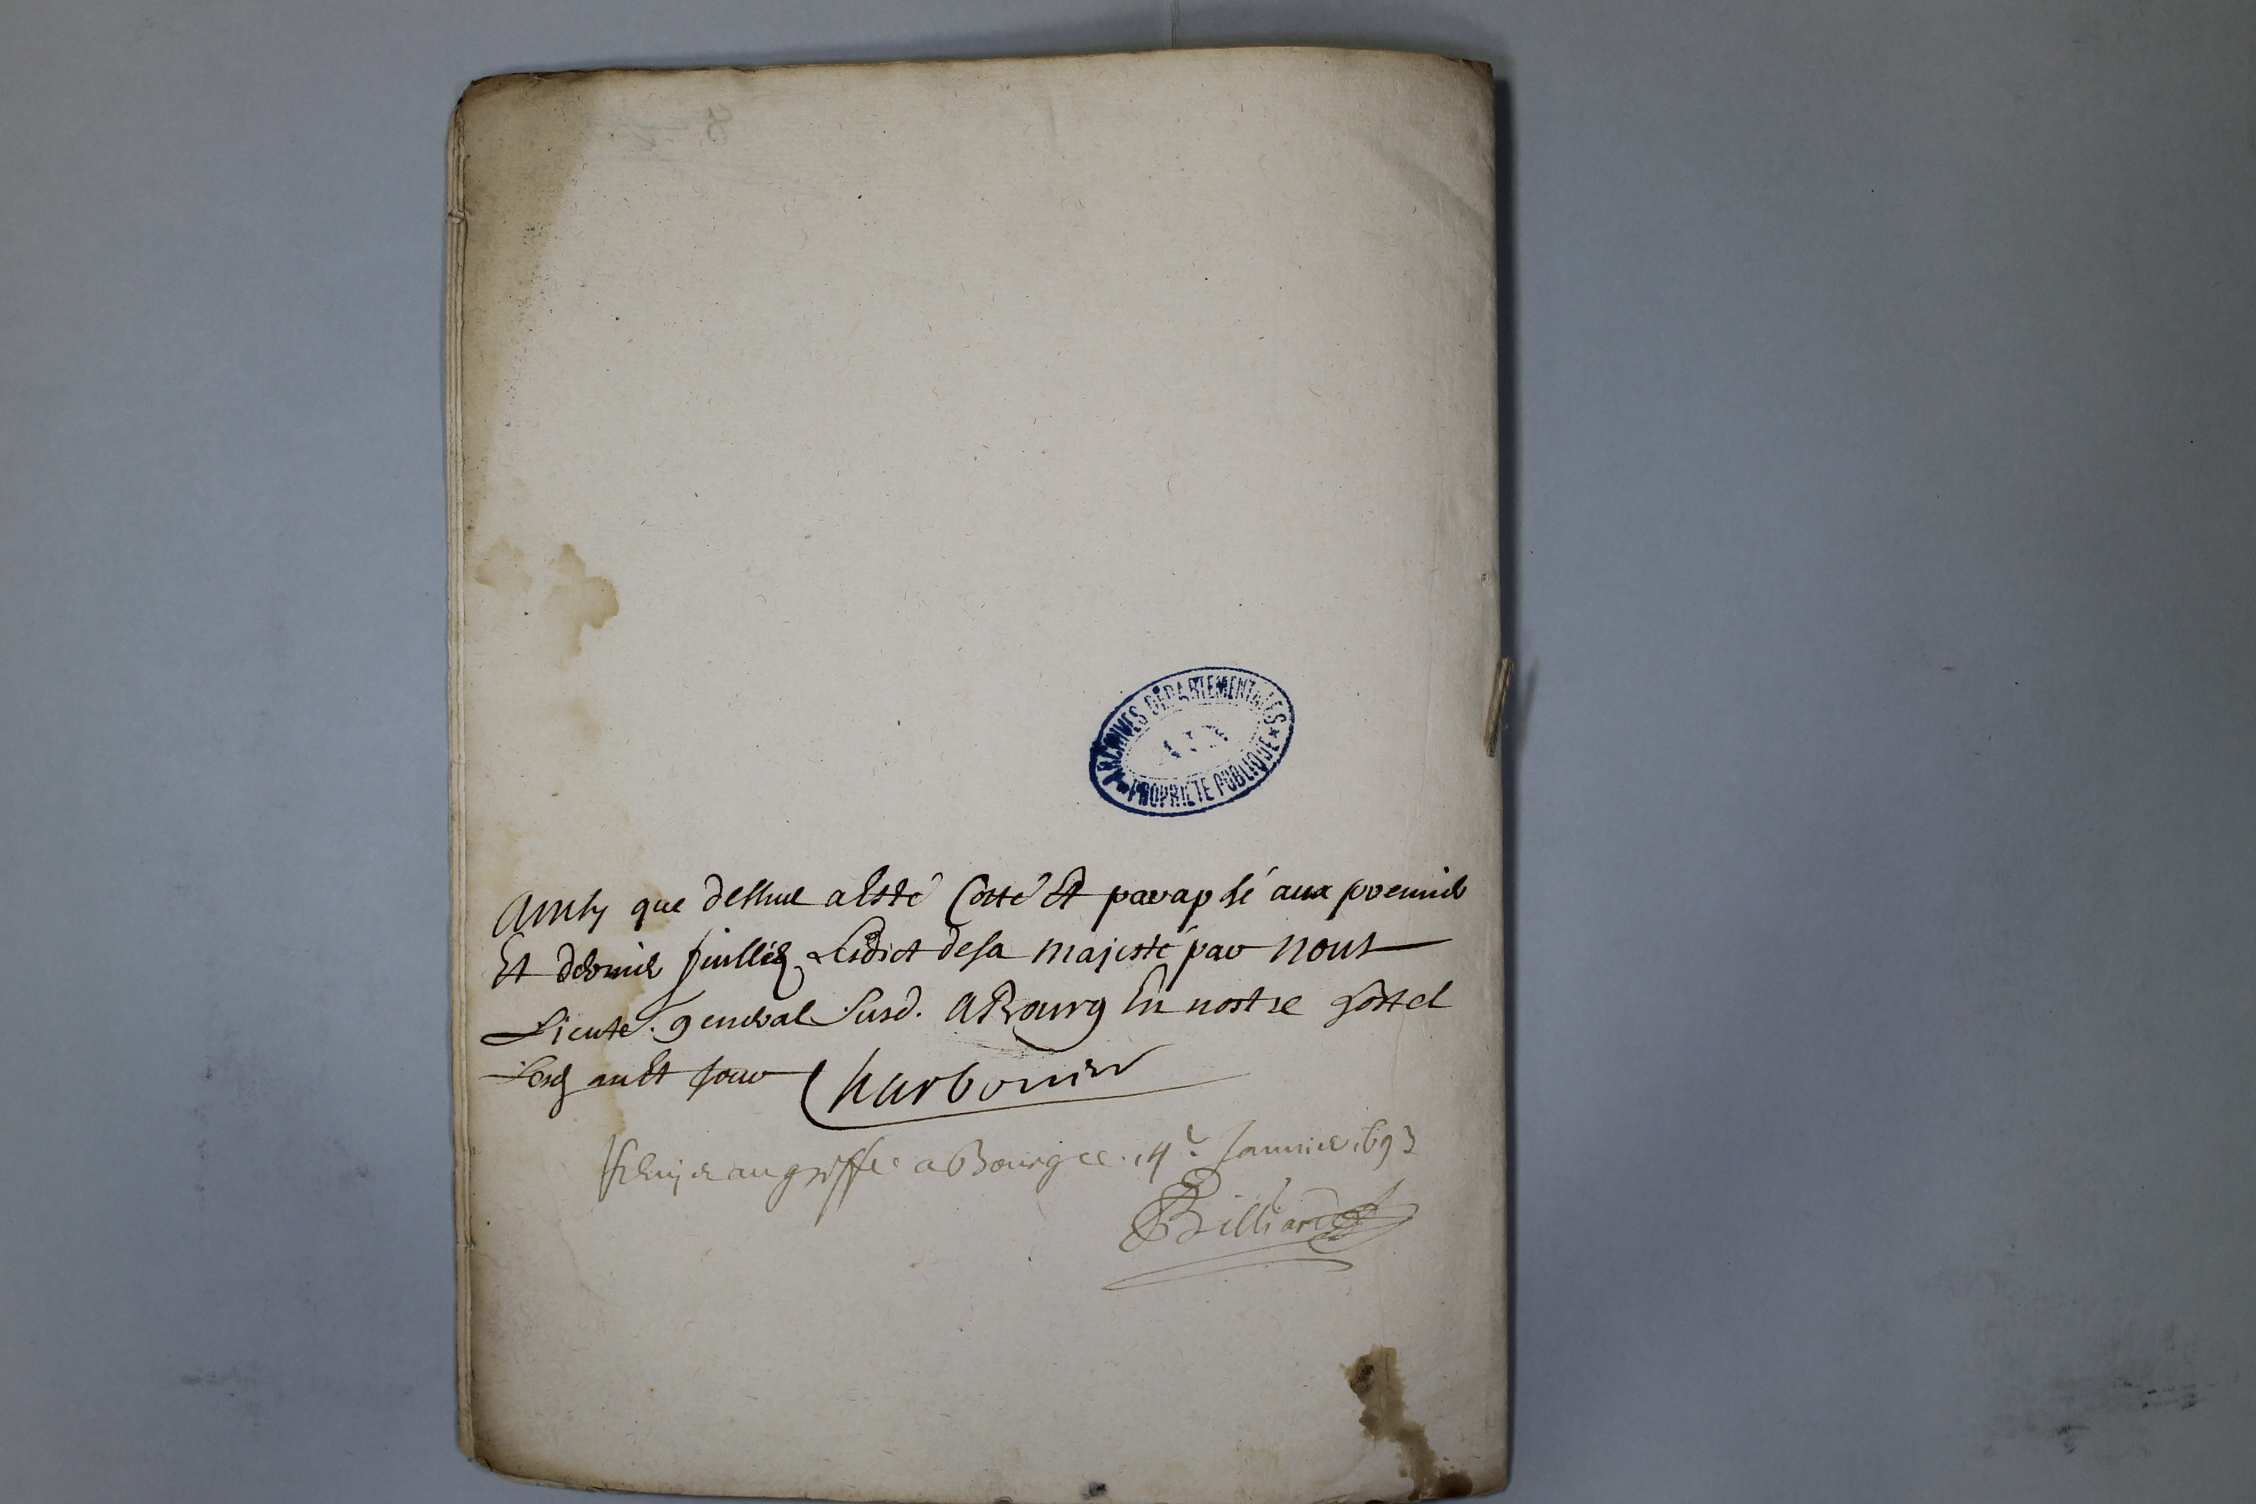 ARCHIVES DÉPARTEMENTALES
AIN
* PROPRIÉTÉ PUBLIQUE *
Ainsy que dessus a esté cotté et paraphé aux premier
et dernier feuillés ledict de sa majesté par nous
Lieute. general susd. a Bourg en nostre hostel
lesd an et jour Charbonier
au greffe a Bourg ce 14e Janvier 1693
Billiard